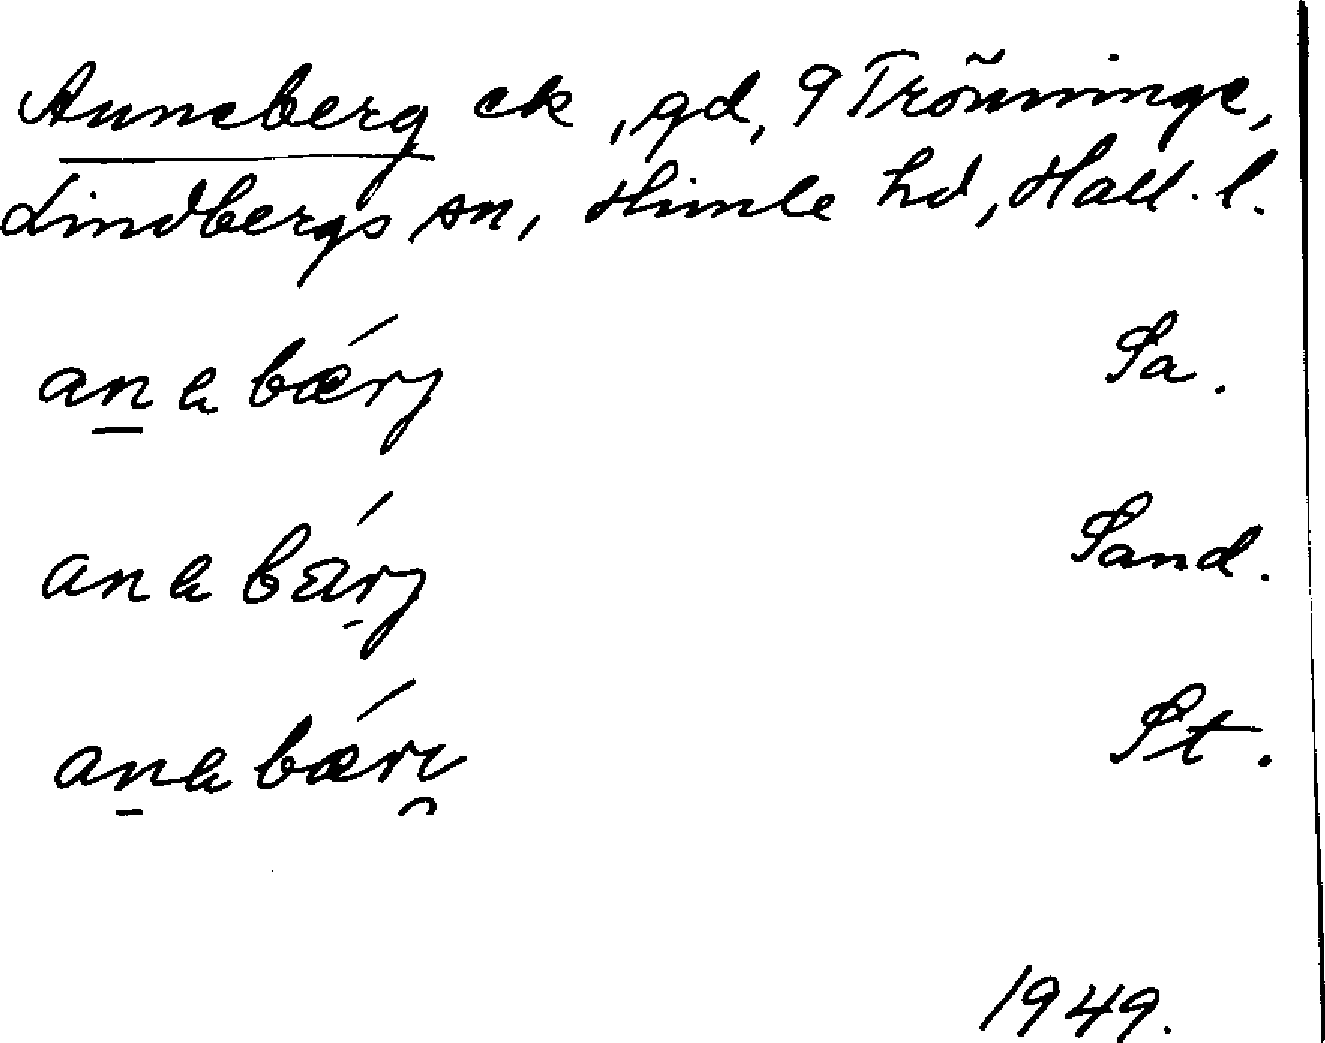 Anneberg ek, gd, 9 Trönninge,
Lindbergs sn, Himle hd, Hall. l.
anabǽrj Sa.
anabǽrj Sand.
anabǽrı St.
1949.